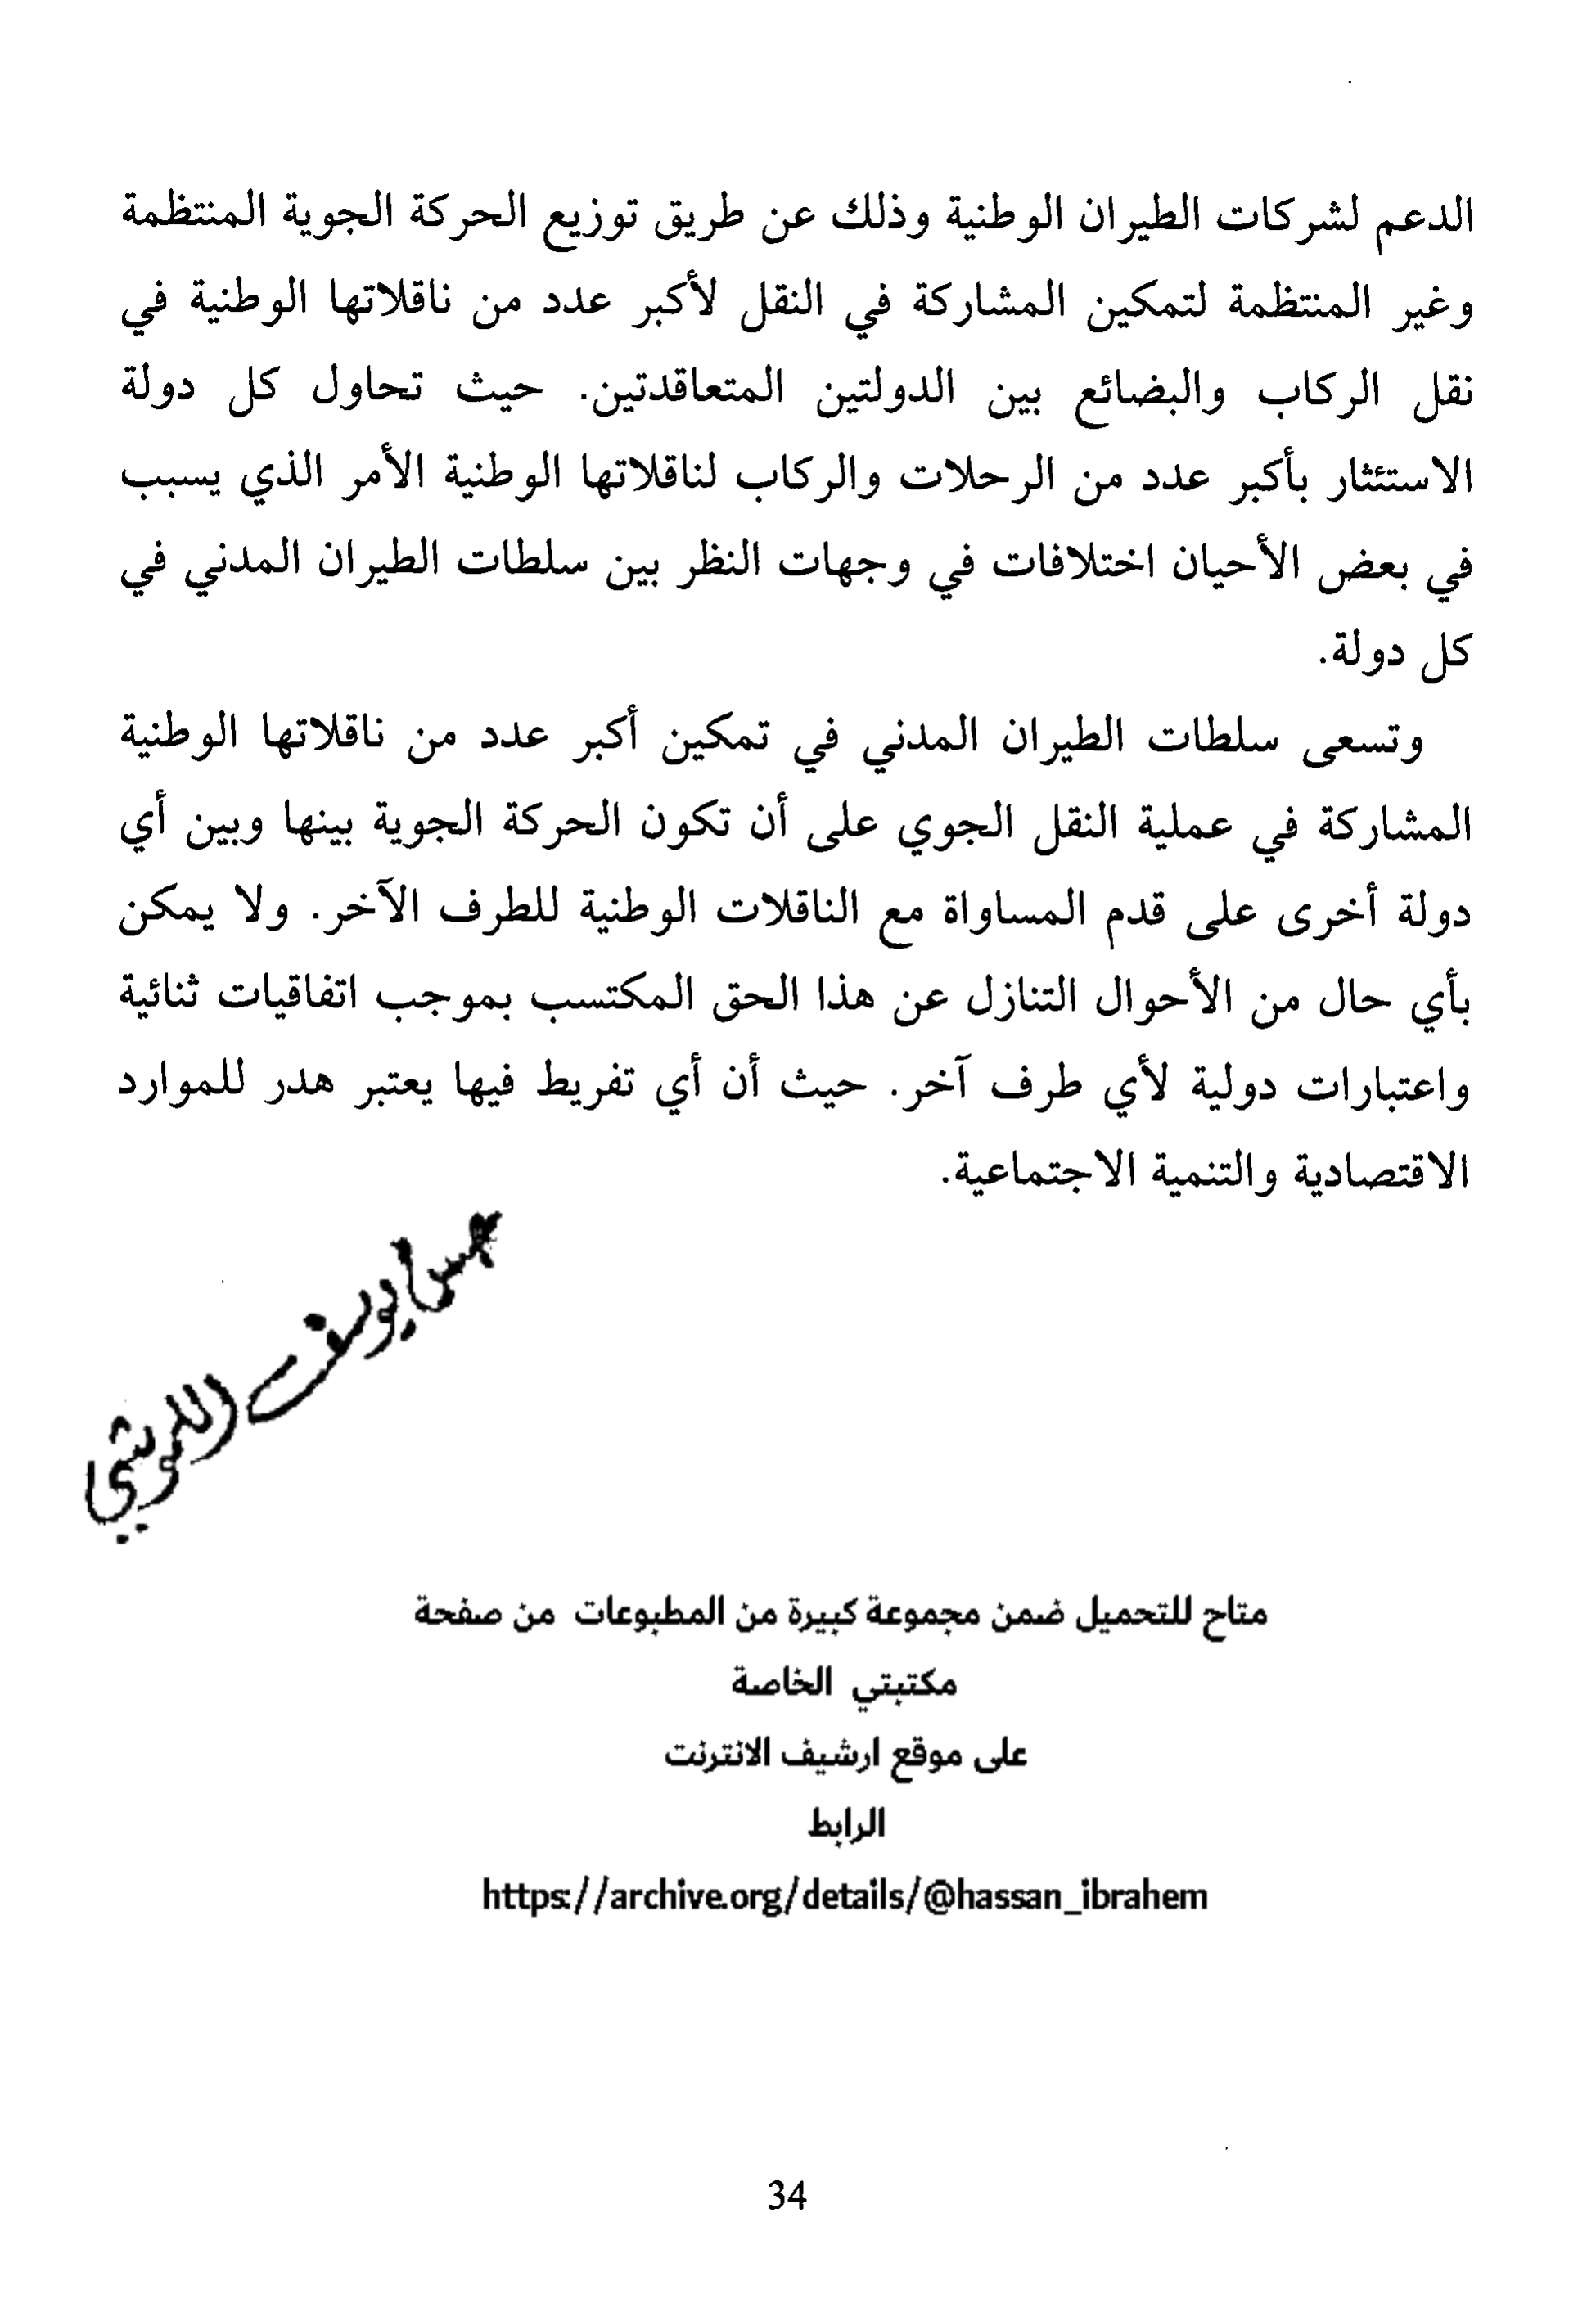 الدعم لشركات الطيران الوطنية وذلك عن طريق توزيع الحركة الجوية المنتظمة
وغير المنتظمة لتمكين المشاركة في النقل لأكبر عدد من ناقلاتها الوطنية في
نقل الركاب والبضائع بين الدولتين المتعاقدتين. حيث تحاول كل دولة
الاستئثار بأكبر عدد من الرحلات والركاب لناقلاتها الوطنية الأمر الذي يسبب
في بعض الأحيان اختلافات في وجهات النظر بين سلطات الطيران المدني في
كل دولة.
وتسعى سلطات الطيران المدني في تمكين أكبر عدد من ناقلاتها الوطنية
المشاركة في عملية النقل الجوي على أن تكون الحركة الجوية بينها وبين أي
دولة أخرى على قدم المساواة مع الناقلات الوطنية للطرف الآخر. ولا يمكن
بأي حال من الأحوال التنازل عن هذا الحق المكتسب بموجب اتفاقيات ثنائية
واعتبارات دولية لأي طرف آخر. حيث أن أي تفريط فيها يعتبر هدر للموارد
الاقتصادية والتنمية الاجتماعية.
يوسف
متاح للتحميل ضمن مجموعة كبيرة من المطبوعات من صفحة
مكتبتي الخاصة
على موقع ارشيف الانترنت
الرابط
https://archive.org/details/@hassan_ibrahem
34